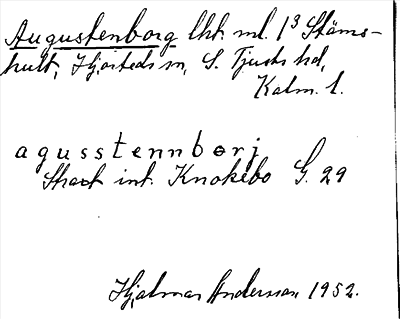 Augustenborg lht. ml. 1³ Stäms-
hult, Hjorteds sn, S. Tjusts hd,
Kalm. l.
agusstennborj
Strax int. Knokebo G. 29
Hjalmar Andersson 1952.